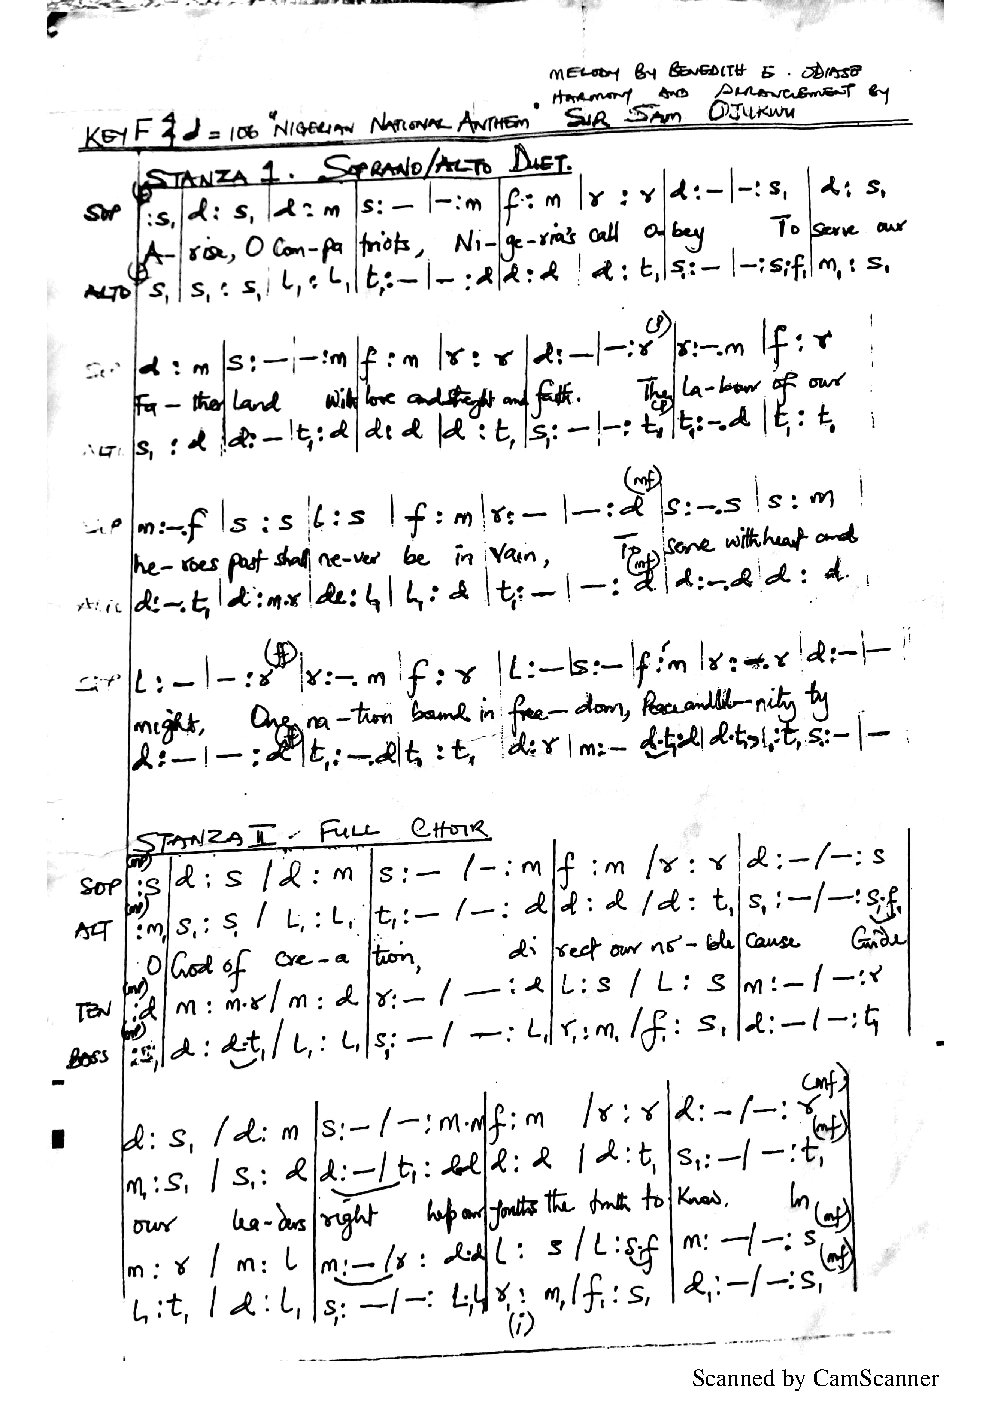 MELODY BY BENEDITH E. ODIASE
HARMONY AND ARRANGEMENT BY
KEY F 4/4 d = 106 "NIGERIAN NATIONAL ANTHEM" SIR SAM OJUKWU
STANZA 1. SOPRANO/ALTO DUET.
SOP :s₁|d : s₁|d : m|s : — |— : m|f : m|r : r|d : — |— : s₁|d : s₁
A- rise, O Com-pa triots, Ni-ge-ria's call o-bey To serve our
ALTO s₁|s₁ : s₁|l₁ : l₁|t₁ : — |— : d|d : d|d : t₁|s₁ : — |— : s₁.f₁|m₁ : s₁
SOP d : m|s : — |— : m|f : m|r : r|d : — |— : r|r : —.m|f : r
Fa-ther land With love and strenght and faith. The la-bour of our
ALTO s₁ : d|d : — |t₁ : d|d : d|d : t₁|s₁ : — |— : t₁|t₁ : —.d|t₁ : t₁
(mf)
SOP m : —.f|s : s|l : s|f : m|r : — |— : d|s : —.s|s : m
he-roes past shall ne-ver be in vain, To serve with heart and
(mf)
ALTO d : —.t₁|d : m.r|de : l₁|l₁ : d|t₁ : — |— : d|d : —.d|d : d
(f)
SOP l : — |— : r|r : —.m|f : r|l : — |s : — |f : m|r : —.r|d : — |—
might, One na-tion bound in free-dom, Peace and U-nity ty
d : — |— : d|t₁ : —.d|t₁ : t₁|d : r|m : — d.t₁:d|d.t₁ : t₁ s₁ : — |—
STANZA II. FULL CHOIR
(mp)
SOP :s|d : s / d : m|s : — / — : m|f : m / r : r|d : — / — : s
(mp)
ALT :m₁|s₁ : s₁ / l₁ : l₁|t₁ : — / — : d|d : d / d : t₁|s₁ : — / — : s₁.f₁
O God of cre-a tion, di rect our no-ble cause Guide
(mp)
TEN :d|m : m.r / m : d|r : — / — : d|l : s / l : s|m : — / — : r
(mp)
BASS :s₁|d : d.t₁ / l₁ : l₁|s₁ : — / — : l₁|r₁ : m₁ / f₁ : s₁|d : — / — : t₁
(mf)
d : s₁ / d : m|s : — / — : m.m|f : m / r : r|d : — / — : r
(mf)
m₁ : s₁ / s₁ : d|d : — / t₁ : d.d|d : d / d : t₁|s₁ : — / — : t₁
our lea-ders right help our youths the truth to know. In
(mf)
m : r / m : l|m : — / r : d.d|l : s / l : s.f|m : — / — : s
(mf)
l₁ : t₁ / d : l₁|s₁ : — / — : l₁.l₁|r₁ : m₁ / f₁ : s₁|d₁ : — / — : s₁
(i)
Scanned by CamScanner